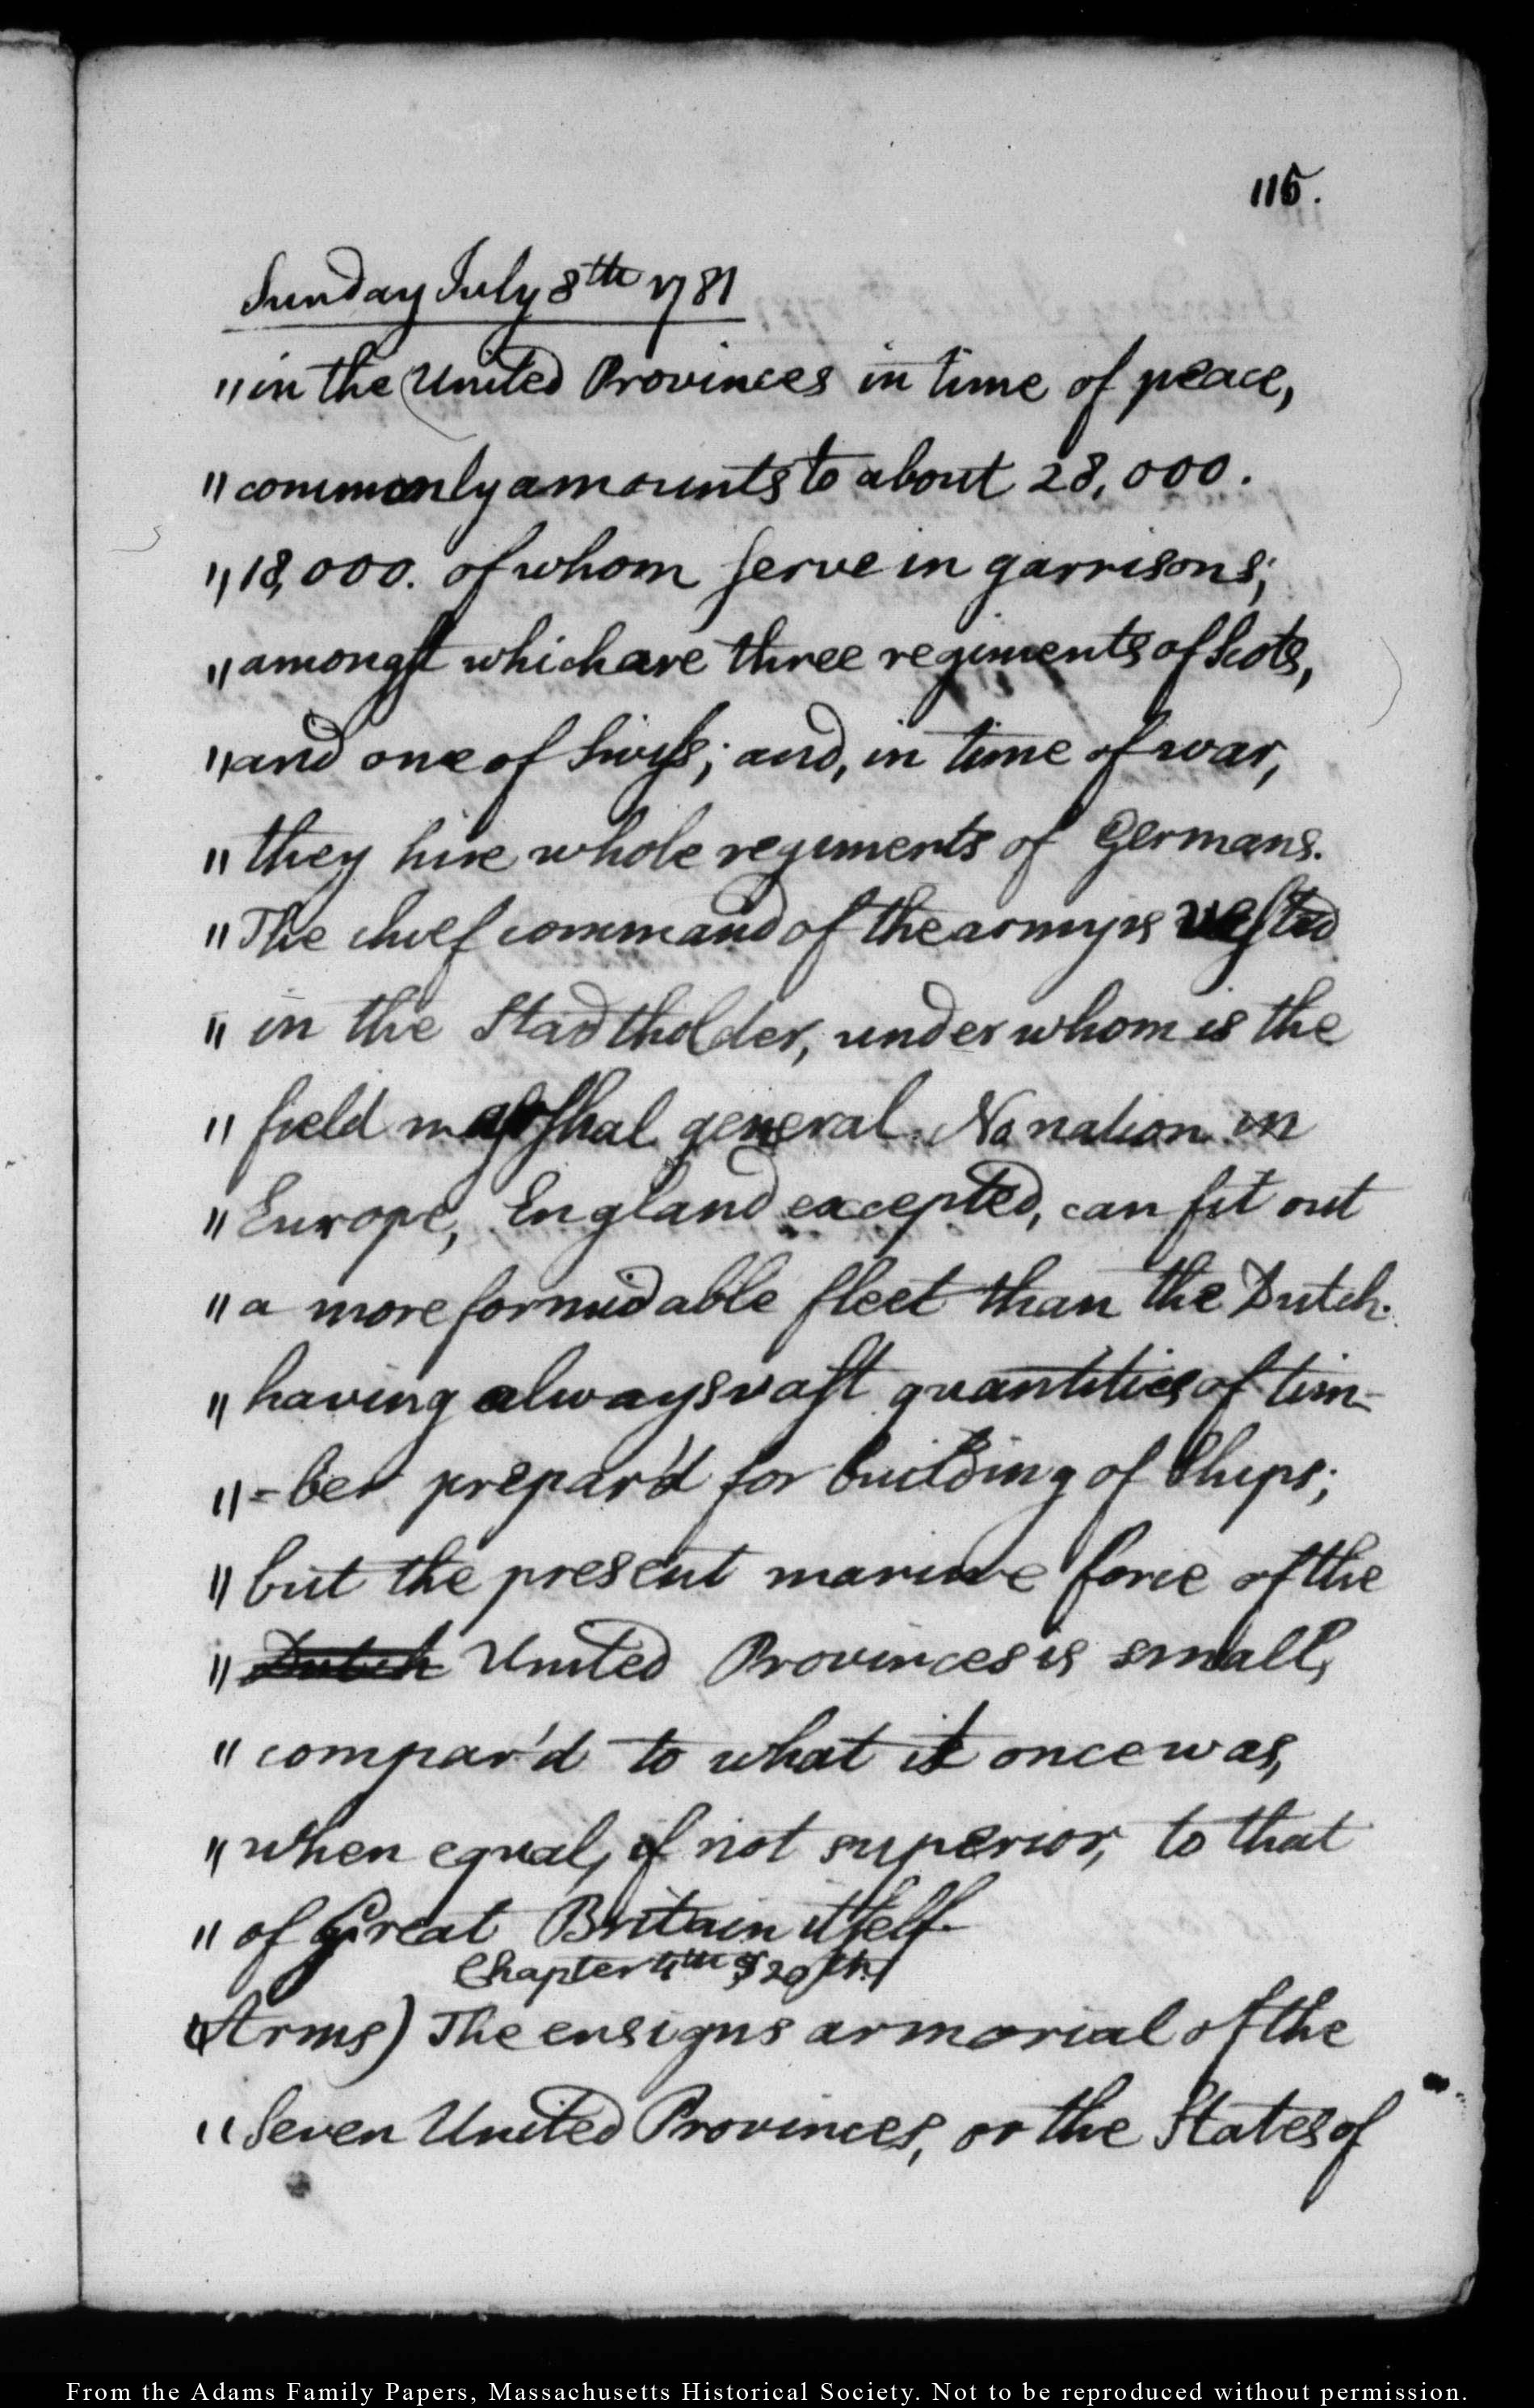 115.
Sunday July 8th 1781
"in the United Provinces in time of peace,
"commonly amounts to about 28,000.
"18,000. of whom serve in garrisons;
"amongst which are three regiments of Scots,
"and one of Swiss; and, in time of war,
"they hire whole regiments of Germans.
"The chief command of the army is vested
"in the Stadtholder, under whom is the
"field marshal general. No nation in
"Europe, England excepted, can fit out
"a more formidable fleet than the Dutch.
"having always vast quantities of tim-
"-ber prepar'd for building of Ships;
"but the present marine force of the
"Dutch United Provinces is small,
"compar'd to what it once was,
"when equal, if not superior, to that
"of Great Britain itself.
Chapter 4th & 20th
(Arms) The ensigns armorial of the
"Seven United Provinces, or the States of
From the Adams Family Papers, Massachusetts Historical Society. Not to be reproduced without permission.